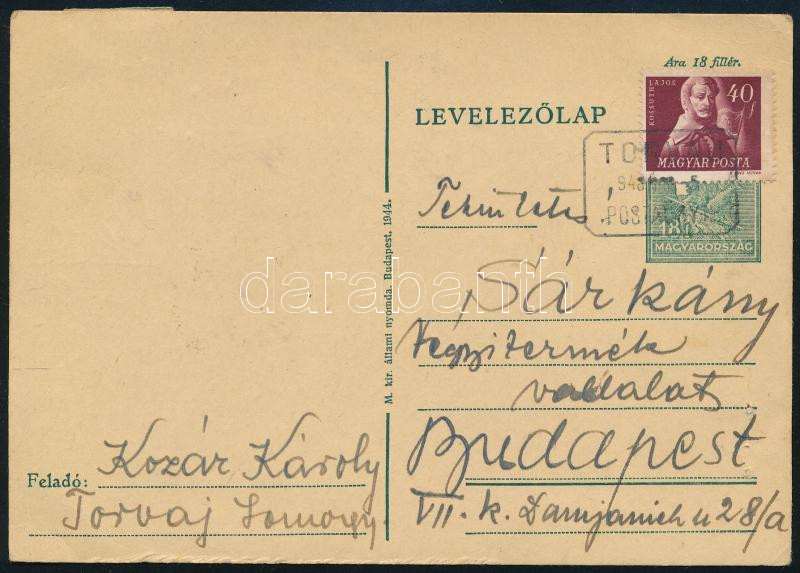 Ara 18 fillér.
LEVELEZŐLAP
KOSSUTH LAJOS
40 f
MAGYAR POSTA
948
POST
18
MAGYARORSZÁG
Tekintetes
Sárkány
Vegyitermék
vallalat
Budapest
VII. k. Damjanich u 28/a
M. kir. állami nyomda. Budapest, 1944.
Feladó: Kozár Károly
Torvaj Somogy
darabanth